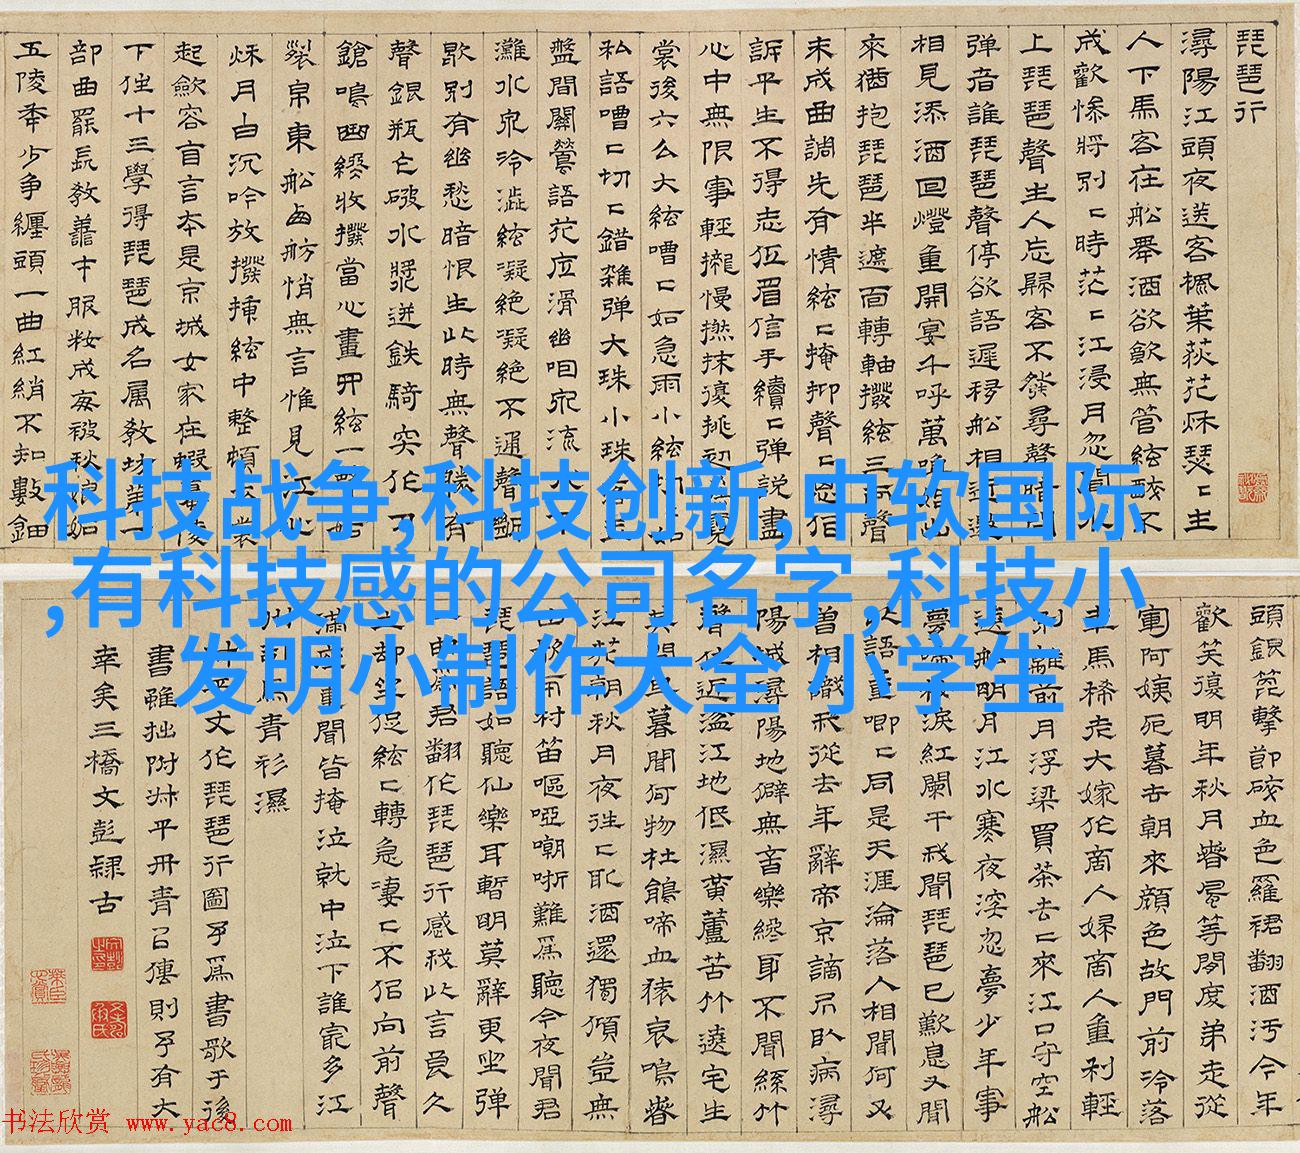 琵琶行
潯陽江頭夜送客楓葉荻花秋瑟〻主
人下馬客在船舉酒欲飲無管絃醉不
成歡慘將別〻時茫〻江浸月忽聞水
上琵琶聲主人忘歸客不發尋聲暗問
彈者誰琵琶聲停欲語遲移船相近邀
相見添酒回燈重開宴千呼萬喚始出
來猶抱琵琶半遮面轉軸撥絃三兩聲
未成曲調先有情絃〻掩抑聲〻思似
訴平生不得志低眉信手續〻彈說盡
心中無限事輕攏慢撚抹復挑初霓
裳後六么大絃嘈〻如急雨小絃切〻如
私語嘈〻切〻錯雜弹大珠小珠落玉
盤間關鶯語花底滑幽咽泉流水下
灘水泉冷澁絃凝絶凝絶不通聲漸
歇別有幽愁暗恨生此時無聲勝有
聲銀瓶乍破水漿迸鉄騎突作刀
鎗鳴曲終收撥當心畫四絃一聲如
裂帛東船西舫悄無言惟見江心
秋月白沉吟放撥揷絃中整頓衣裳
起斂容自言本是京城女家在蝦蟇陵
下住十三學得琵琶成名属教坊第一
部曲罷長教善才服粧成每被秋娘妬
五陵年少争纏頭一曲紅綃不知數鈿
科技战争,科技创新,中软国际
,有科技感的公司名字,科技小
发明小制作大全 小学生
頭銀篦擊節碎血色羅裙翻酒汚今年
歡笑復明年秋月春風等閒度弟走從
軍阿姨死暮去朝來顔色故門前冷落
車馬稀老大嫁作商人婦商人重利輕
別離前月浮梁買茶去〻來江口守空船
遶船明月江水寒夜深忽夢少年事
夢啼妝淚紅闌干我聞琵琶已歎息又聞
此語重唧〻同是天涯淪落人相聞何必
曾相識我從去年辭帝京謫居卧病潯
陽城潯陽地僻無音樂終歲不聞絲竹
聲住近湓江地低濕黄蘆苦竹遶宅生
其間旦暮聞何物杜鵑啼血猿哀鳴春
江花朝秋月夜往〻取酒還獨傾豈無
山歌與村笛嘔啞嘲哳難爲聽今夜聞君
琵琶語如聽仙樂耳暫明莫辭更坐弹
一曲爲君翻作琵琶行感我此言良久
立却坐促絃〻轉急凄〻不似向前聲
滿座重聞皆掩泣就中泣下誰寂多江
州司馬青衫濕
丈作琵琶行圖予爲書歌于後
書雖拙附於平冊青以傳則予有大
幸矣三橋文彭隸古
书法欣赏 www.yac8.com